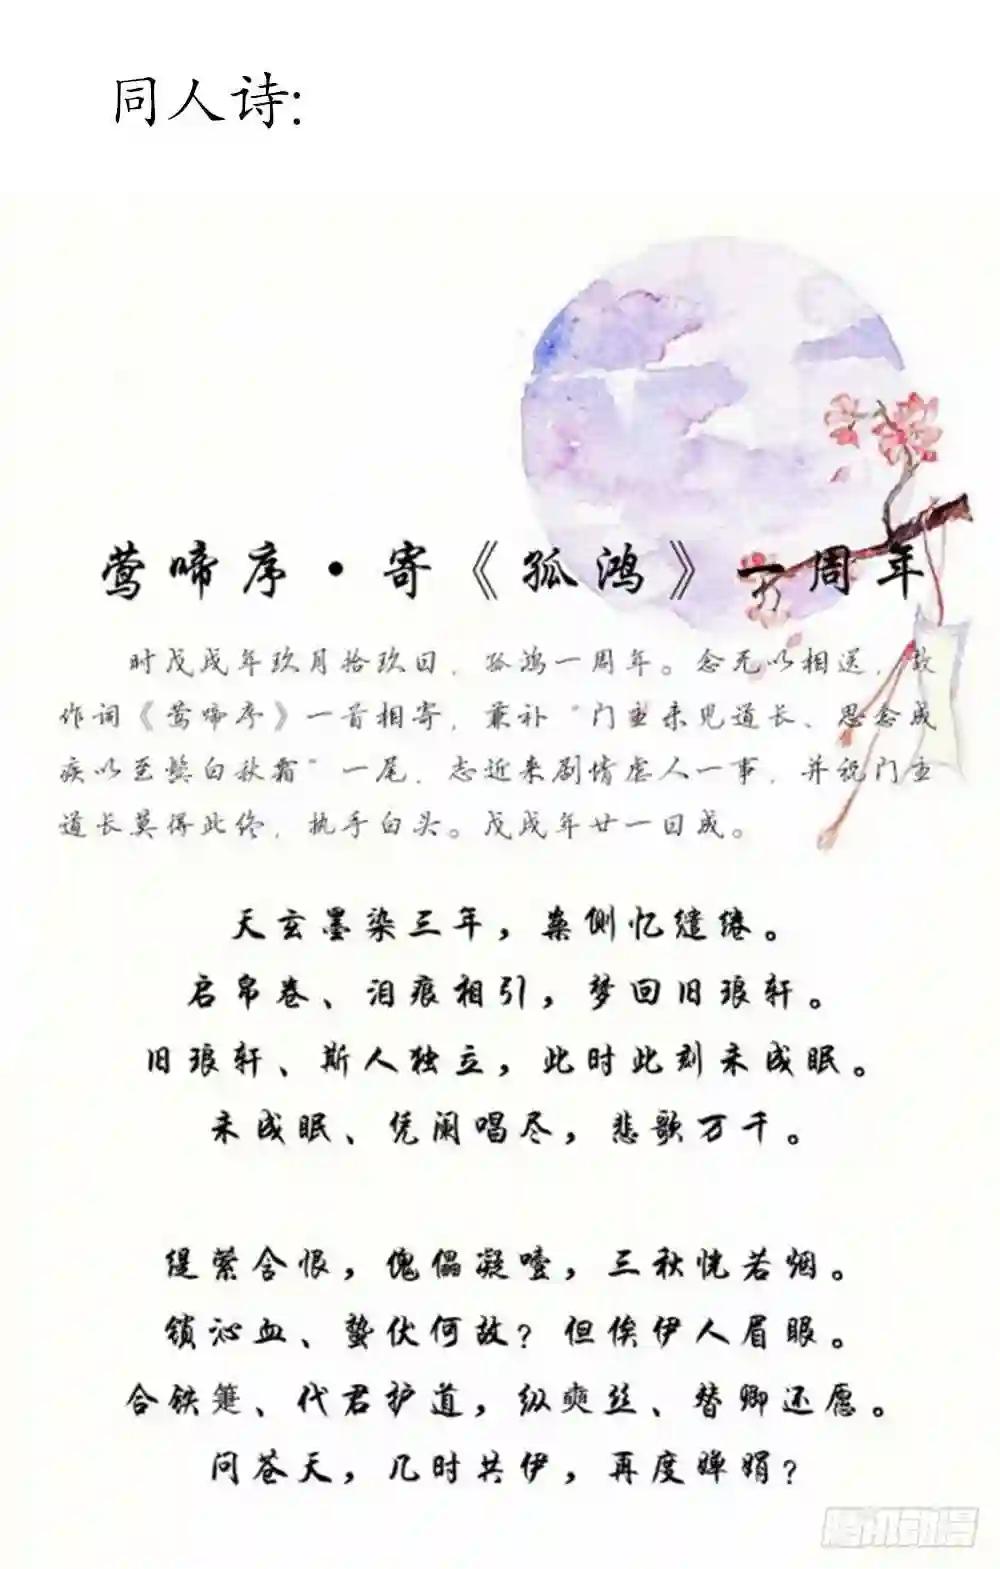 同人诗:
莺啼序·寄《孤鸿》一周年
时戊戌年玖月拾玖日，孤鸿一周年。念无以相送，故
作词《莺啼序》一首相寄，兼补“门主未见道长、思念成
疾以至鬓白秋霜”一尾，志近来剧情虐人一事，并祝门主
道长莫得此终，执手白头。戊戌年廿一日成。
天玄墨染三年，案侧忆缱绻。
启帛卷、泪痕相引，梦回旧琅轩。
旧琅轩、斯人独立，此时此刻未成眠。
未成眠、凭阑唱尽，悲歌万千。
缇萦含恨，傀儡凝噎，三秋恍若烟。
锁沁血、蛰伏何故？但俟伊人眉眼。
合铁筵、代君护道，纵爽丝、替卿还愿。
问苍天，几时共伊，再度婵娟？
腾讯动漫